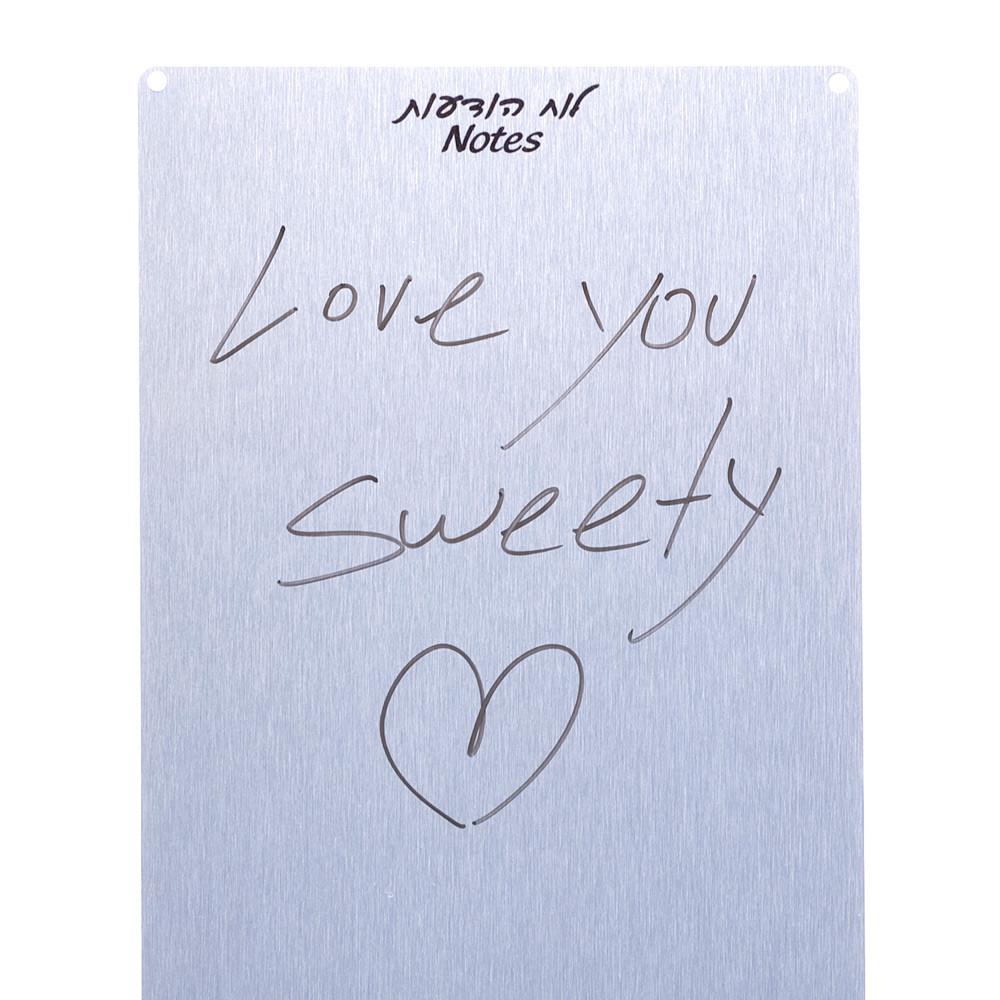 לוח הודעות
Notes
Love you
sweety